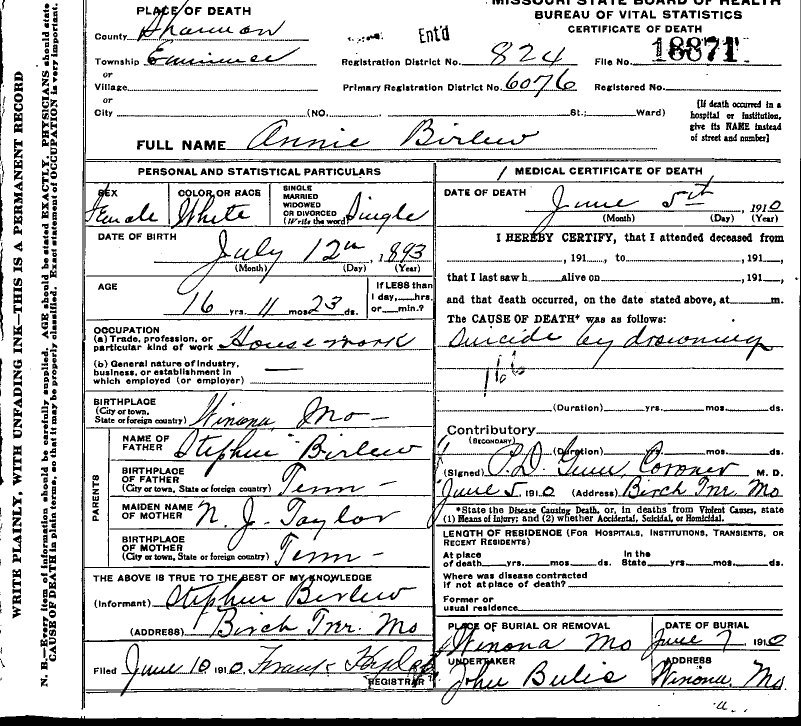 MISSOURI STATE BOARD OF HEALTH
BUREAU OF VITAL STATISTICS
CERTIFICATE OF DEATH
PLACE OF DEATH
County Shannon Ent'd
Township Eminence Registration District No. 824 File No. 18871
or
Village Primary Registration District No. 6076 Registered No.
or
City (NO. St.; Ward)
[If death occurred in a hospital or institution, give its NAME instead of street and number]
FULL NAME Annie Birlew
WRITE PLAINLY, WITH UNFADING INK—THIS IS A PERMANENT RECORD
N. B.—Every item of information should be carefully supplied. AGE should be stated EXACTLY. PHYSICIANS should state
CAUSE OF DEATH in plain terms, so that it may be properly classified. Exact statement of OCCUPATION is very important.
PERSONAL AND STATISTICAL PARTICULARS
SEX Female
COLOR OR RACE White
SINGLE MARRIED WIDOWED OR DIVORCED (Write the word) Single
DATE OF BIRTH July 12th, 1893
(Month) (Day) (Year)
AGE 16 yrs. 11 mos. 23 ds.
If LESS than 1 day, hrs. or min.?
OCCUPATION
(a) Trade, profession, or particular kind of work Housework
(b) General nature of industry, business, or establishment in which employed (or employer) —
BIRTHPLACE (City or town, State or foreign country) Winona, Mo —
PARENTS
NAME OF FATHER Stephen Birlew
BIRTHPLACE OF FATHER (City or town, State or foreign country) Tenn —
MAIDEN NAME OF MOTHER N. J. Taylor
BIRTHPLACE OF MOTHER (City or town, State or foreign country) Tenn —
THE ABOVE IS TRUE TO THE BEST OF MY KNOWLEDGE
(Informant) Stephen Birlew
(ADDRESS) Birch Tree, Mo
Filed June 10 1910 Frank
REGISTRAR
MEDICAL CERTIFICATE OF DEATH
DATE OF DEATH June 5th 1910
(Month) (Day) (Year)
I HEREBY CERTIFY, that I attended deceased from
, 191 , to , 191 ,
that I last saw h alive on , 191 ,
and that death occurred, on the date stated above, at m.
The CAUSE OF DEATH* was as follows:
Suicide by drowning
166
(Duration) yrs. mos. ds.
Contributory
(SECONDARY)
(Duration) yrs. mos. ds.
(Signed) Coroner M. D.
June 5, 1910 (Address) Birch Tree Mo
*State the Disease Causing Death, or, in deaths from Violent Causes, state
(1) Means of injury; and (2) whether Accidental, Suicidal, or Homicidal.
LENGTH OF RESIDENCE (For Hospitals, Institutions, Transients, or Recent Residents)
At place of death yrs. mos. ds. In the State yrs. mos. ds.
Where was disease contracted
if not at place of death?
Former or
usual residence
PLACE OF BURIAL OR REMOVAL Winona Mo
DATE OF BURIAL June 7 1910
UNDERTAKER John
ADDRESS Winona, Mo